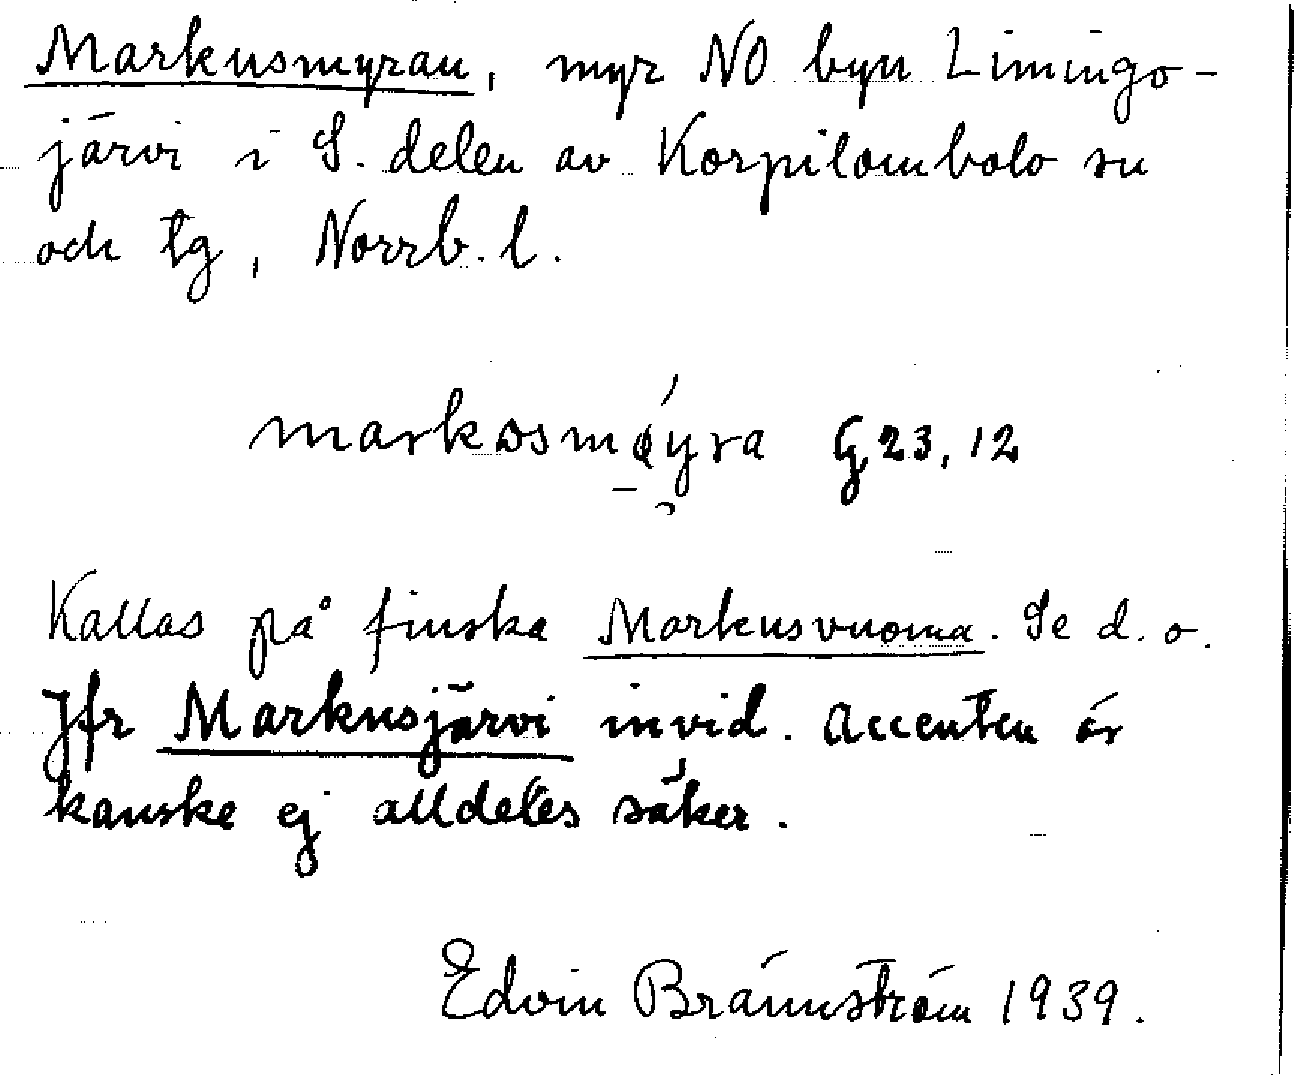 Markusmyran, myr NO byn Limingo-
järvi i S. delen av Korpilombolo sn
och tg, Norrb. l.
G 23, 12
Kallas på finska Markusvuoma. Se d. o.
Jfr Markusjärvi invid. Accenten är
kanske ej alldeles säker.
Edvin Brännström 1939.